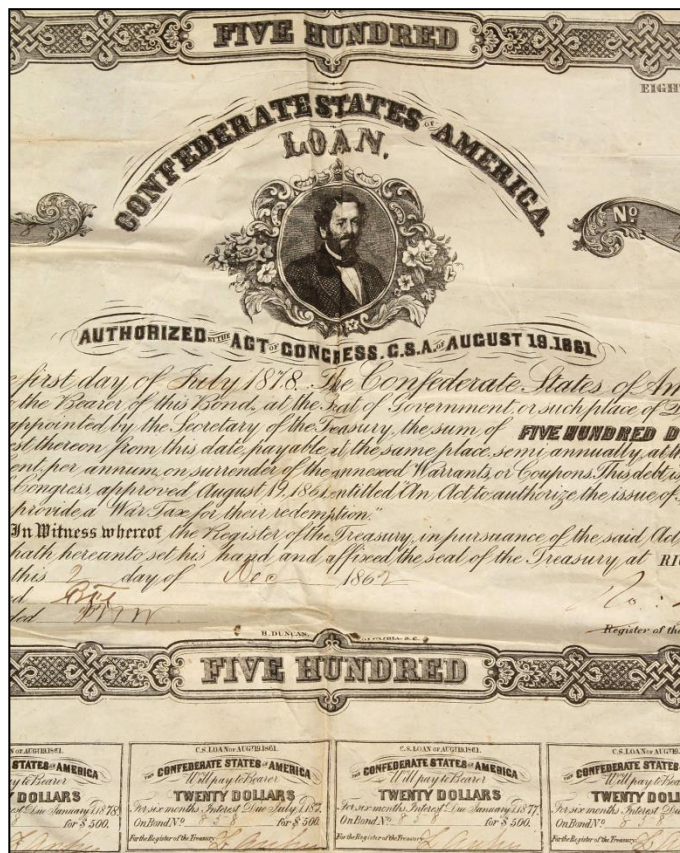 FIVE HUNDRED
EIGH
CONFEDERATE STATES OF AMERICA
LOAN,
No
AUTHORIZED BY THE ACT OF CONGRESS, C.S.A. OF AUGUST 19, 1861
first day of July 1878 The Confederate States of Am
the Bearer of this Bond, at the Seat of Government, or such place of D
appointed by the Secretary of the Treasury, the sum of FIVE HUNDRED D
st thereon from this date, payable at the same place, semi annually, at th
ent. per annum, on surrender of the annexed Warrants, or Coupons. This debt is
Congress, approved August 19, 1861, entitled "An Act to authorize the issue of
provide a War Tax for their redemption."
In Witness whereof the Register of the Treasury, in pursuance of the said Act
hath hereunto set his hand and affixed the seal of the Treasury at RI
this 2 day of Dec 1862
ed
ded
Register of the
H. DUNCAN, COLUMBIA, S.C.
FIVE HUNDRED
N OF AUG 19, 1861.
STATES OF AMERICA
ay to Bearer
Y DOLLARS
est Due January 1, 1878
for $500.
C.S. LOAN OF AUG 19, 1861.
THE CONFEDERATE STATES OF AMERICA
Will pay to Bearer
TWENTY DOLLARS
For six months Interest Due July 1, 187
On Bond No 858 for $500.
For the Register of the Treasury
C.S. LOAN OF AUG 19, 1861.
THE CONFEDERATE STATES OF AMERICA
Will pay to Bearer
TWENTY DOLLARS
For six months Interest Due January 1, 1877
On Bond No 858 for $500.
For the Register of the Treasury
C.S. LOAN OF AUG 19,
THE CONFEDERATE STATES
Will pay to Bea
TWENTY DOL
For six months Interest Due
On Bond No
For the Register of the Treasury